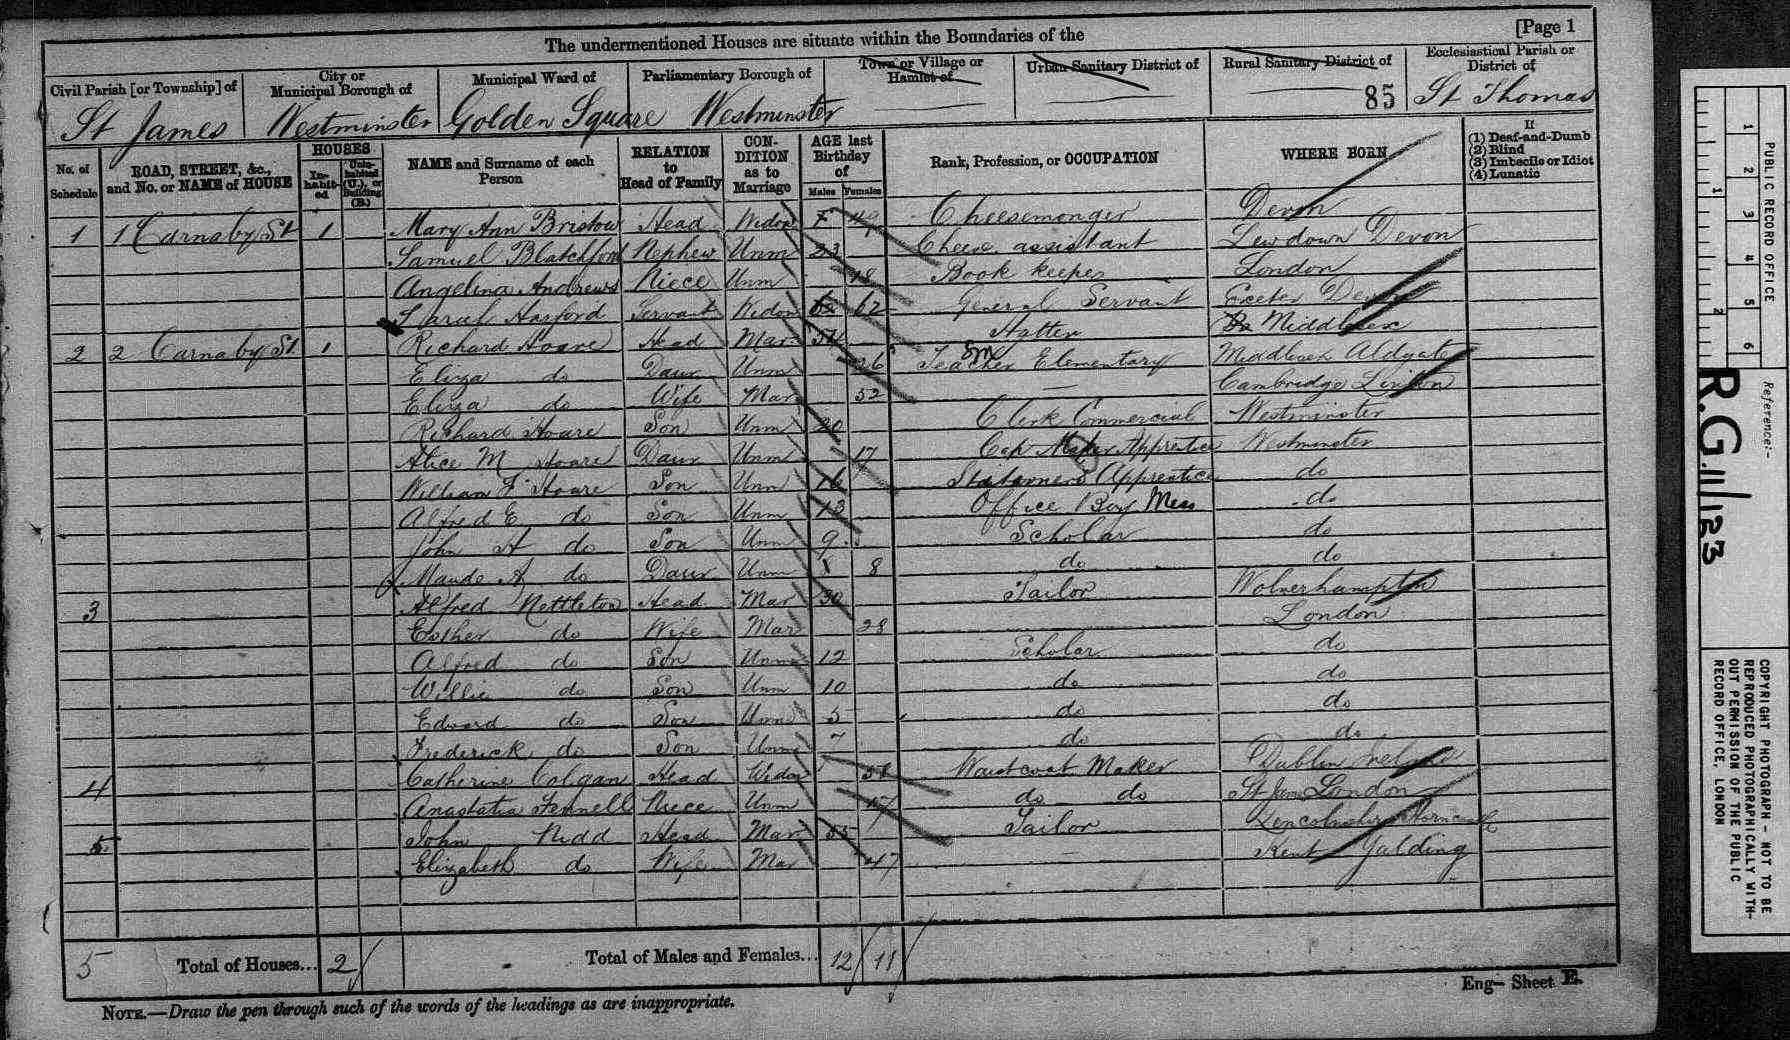 [Page 1
The undermentioned Houses are situate within the Boundaries of the
Civil Parish [or Township] of City or Municipal Borough of Municipal Ward of Parliamentary Borough of Town or Village or Hamlet of Urban Sanitary District of Rural Sanitary District of Ecclesiastical Parish or District of
St James Westminster Golden Square Westminster 85 St Thomas
No. of Schedule ROAD, STREET, &c., and No. or NAME of HOUSE HOUSES In-habit-ed Unin-habited (U.), or Building (B.) NAME and Surname of each Person RELATION to Head of Family CON-DITION as to Marriage AGE last Birthday of Males Females Rank, Profession, or OCCUPATION WHERE BORN If (1) Deaf-and-Dumb (2) Blind (3) Imbecile or Idiot (4) Lunatic
1 1 Carnaby St 1 Mary Ann Bristow Head Widow 49 Cheesemonger Devon
Samuel Blatchford Nephew Unm 23 Cheese assistant Lewdown Devon
Angelina Andrews Niece Unm 18 Book keeper London
Sarah Harford Servant Widow 62 General Servant Exeter Devon
2 2 Carnaby St 1 Richard Hoare Head Mar Hatter Middlesex
Eliza do Daur Unm 26 Teacher Elementary Middlesex Aldgate
Eliza do Wife Mar 52 Cambridge Linton
Richard Hoare Son Unm 20 Clerk Commercial Westminster
Alice M Hoare Daur Unm 17 Cap Maker Apprentice Westminster
William F Hoare Son Unm 16 Stationers Apprentice do
Alfred E do Son Unm 13 Office Boy Mess do
John H do Son Unm 9 Scholar do
Maude A do Daur Unm 8 do do
3 Alfred Nettleton Head Mar 30 Tailor Wolverhampton
Esther do Wife Mar 28 London
Alfred do Son Unm 12 Scholar do
Willie do Son Unm 10 do do
Edward do Son Unm 5 do do
Frederick do Son Unm 7 do do
4 Catherine Colgan Head Widow Waistcoat Maker Dublin Ireland
Anastatia Fennell Niece Unm 17 do do St James London
5 John Nidd Head Mar 55 Tailor Lincolnshire Horncastle
Elizabeth do Wife Mar 47 Kent Yalding
5 Total of Houses... 2 Total of Males and Females... 12 11
Eng- Sheet E.
NOTE.—Draw the pen through such of the words of the headings as are inappropriate.
PUBLIC RECORD OFFICE
1 2 3 4 5 6
1 2
Reference:-
R.G. 11/133
COPYRIGHT PHOTOGRAPH - NOT TO BE
REPRODUCED PHOTOGRAPHICALLY WITH-
OUT PERMISSION OF THE PUBLIC
RECORD OFFICE, LONDON